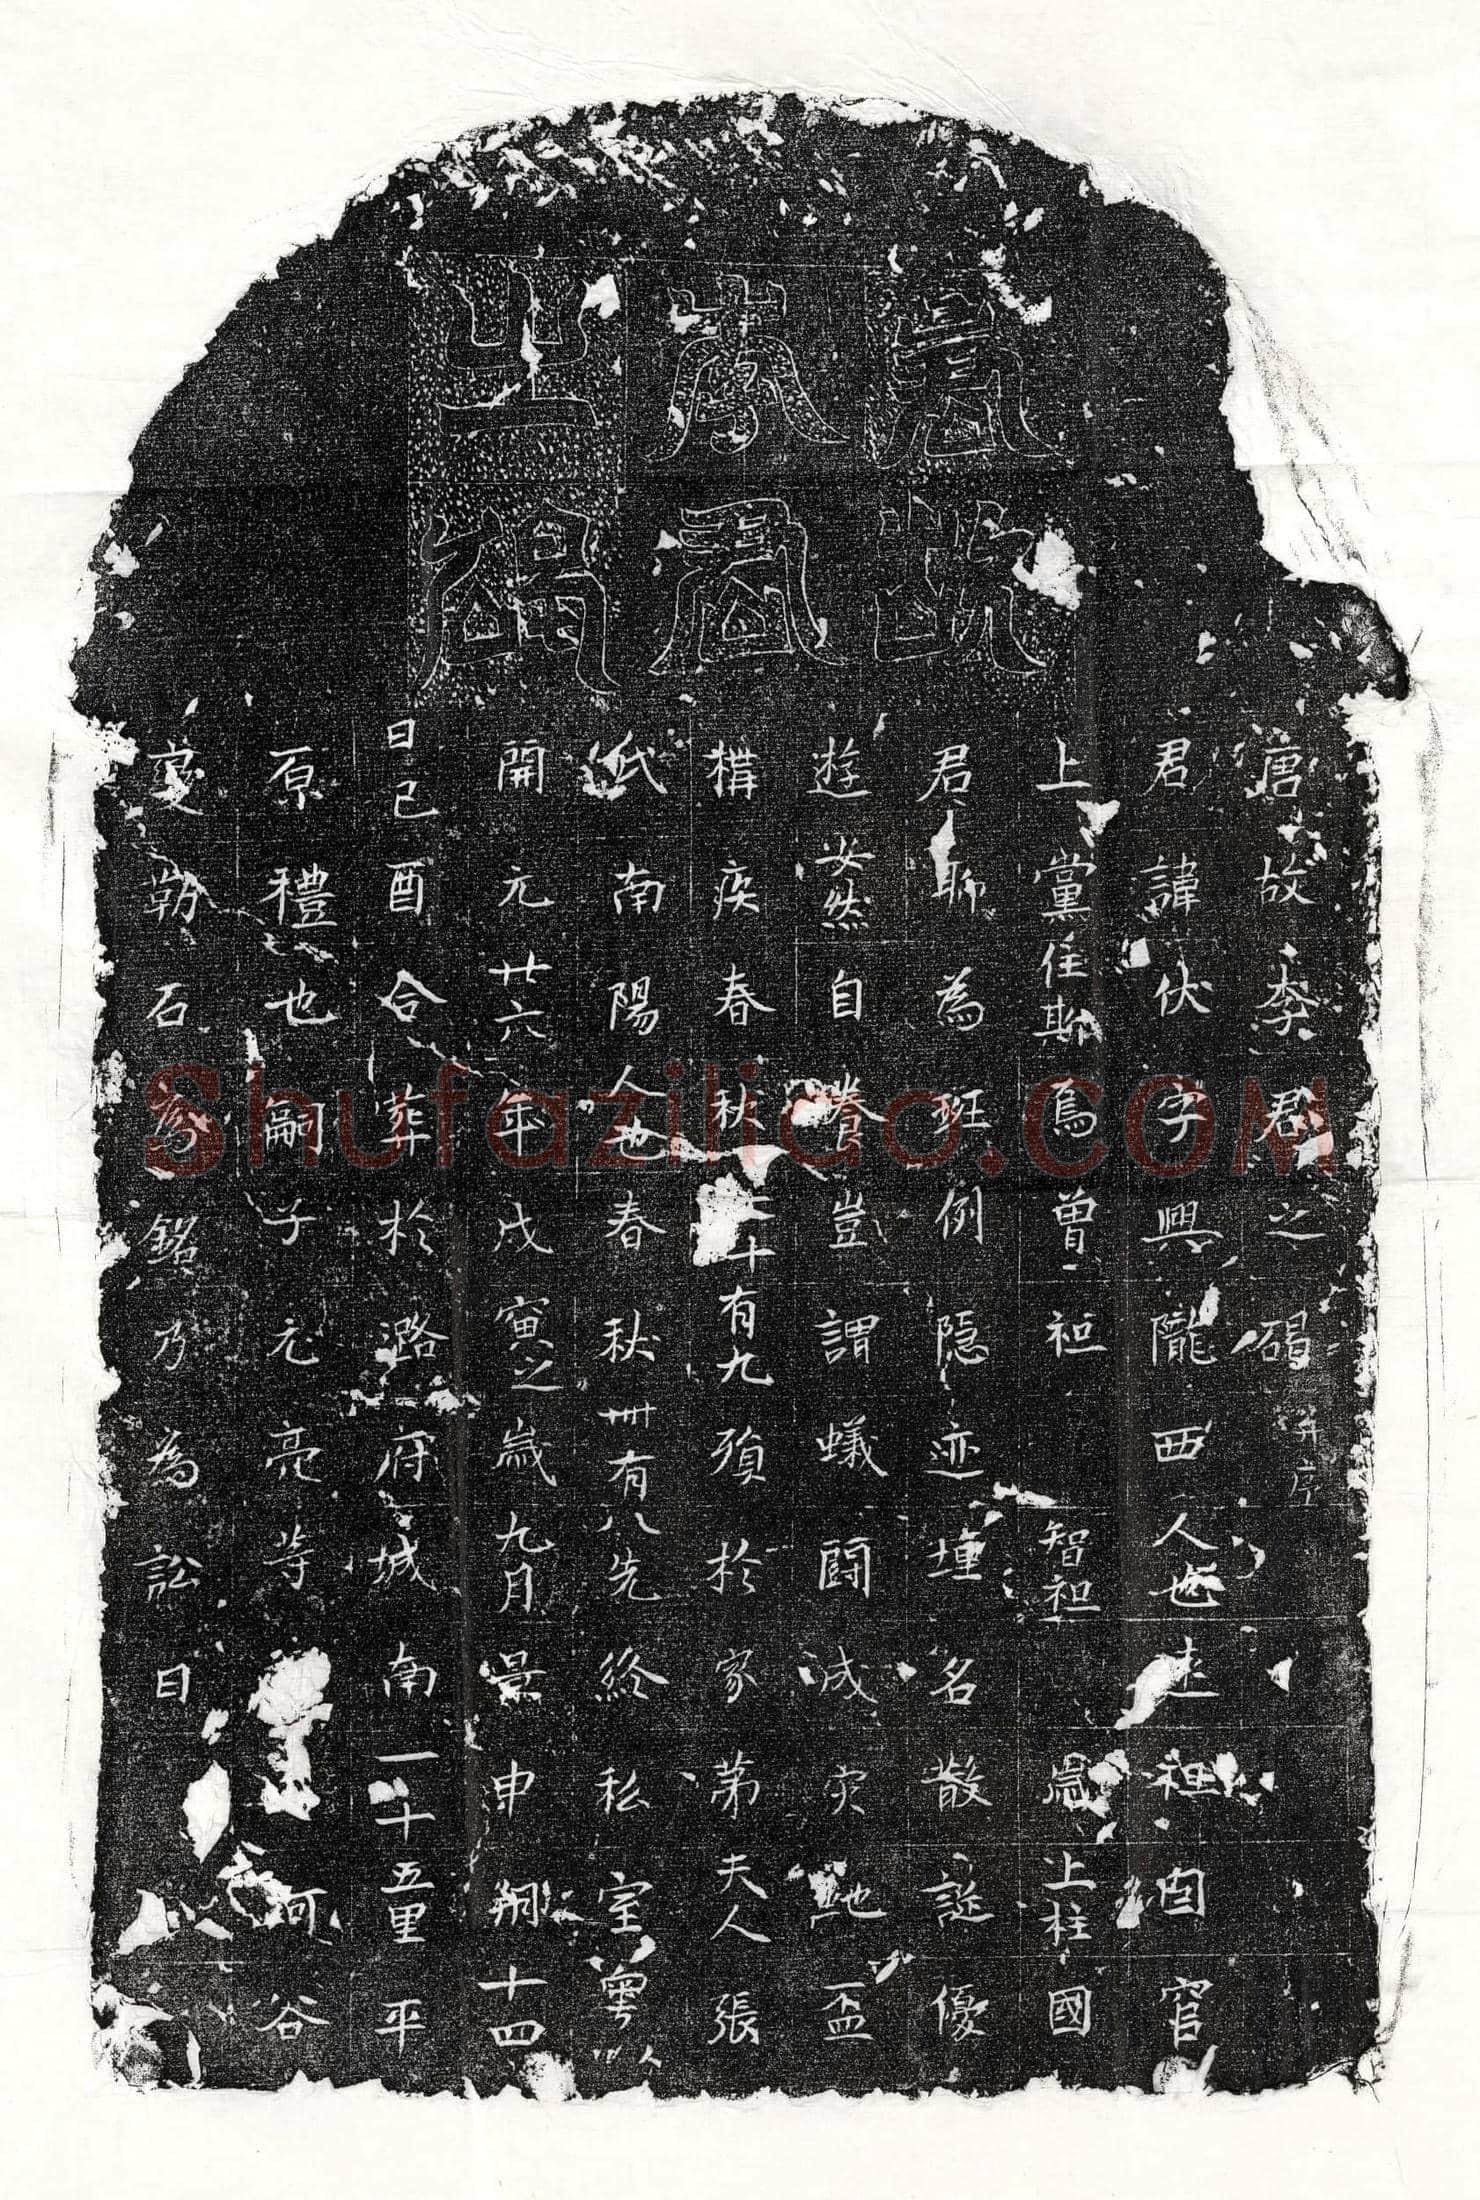 唐故
李君
之碣
唐故李君之碣并序
君諱伏字興隴西人也走祖因官
上黨隹斯焉曾祖智祖上柱國
君聊為班例隱迹堙名散誕優
遊安然自養豈謂蟻鬭成灾虵盃
構疾春秋十有九殞於家第夫人張
氏南陽人也春秋卌有八先終私室粤以
開元廿六年戊寅之歲九月景申朔十四
日己酉合葬於潞府城南一十五里平
原禮也嗣子元亮等河谷
爰勒石銘乃為訟曰
Shufaziliao.com